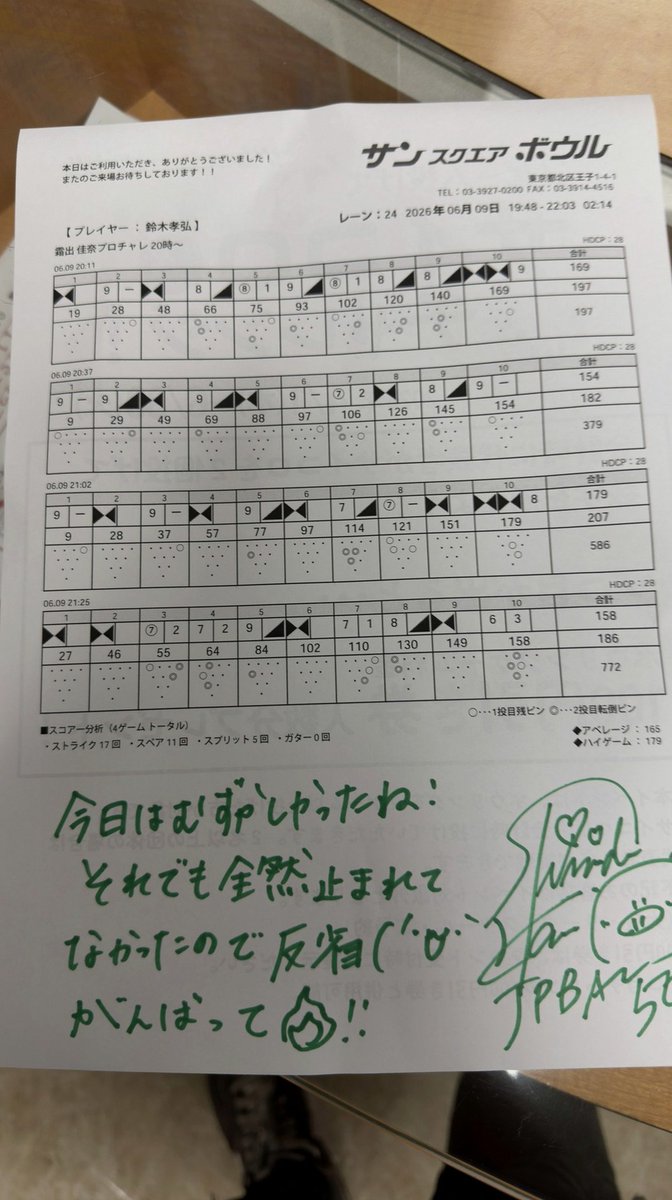 本日はご利用いただき、ありがとうございました！
またのご来場お待ちしております！！
サン スクエア ボウル
東京都北区王子1-4-1
TEL：03-3927-0200 FAX：03-3914-4516
レーン：24 2026年06月09日 19:48 - 22:03 02:14
【 プレイヤー ： 鈴木孝弘 】
霜出 佳奈プロチャレ 20時～
06.09 20:11 HDCP：28
1 2 3 4 5 6 7 8 9 10 合計
9 － 8 ⑧ 1 9 ⑧ 1 8 8 9 169
19 28 48 66 75 93 102 120 140 169 197
197
06.09 20:37 HDCP：28
1 2 3 4 5 6 7 8 9 10 合計
9 － 9 9 9 － ⑦ 2 8 9 － 154
9 29 49 69 88 97 106 126 145 154 182
379
06.09 21:02 HDCP：28
1 2 3 4 5 6 7 8 9 10 合計
9 － 9 － 9 7 ⑦ － 8 179
9 28 37 57 77 97 114 121 151 179 207
586
06.09 21:25 HDCP：28
1 2 3 4 5 6 7 8 9 10 合計
⑦ 2 7 2 9 7 1 8 6 3 158
27 46 55 64 84 102 110 130 149 158 186
772
○･･･1投目残ピン ◎･･･2投目転倒ピン
■スコアー分析（4ゲーム トータル）
・ストライク 17 回 ・スペア 11 回 ・スプリット 5 回 ・ガター 0 回
◆アベレージ： 165
◆ハイゲーム： 179
今日はむずかしかったね！
それでも全然止まれて
なかったので反省
がんばって!!
JPBA